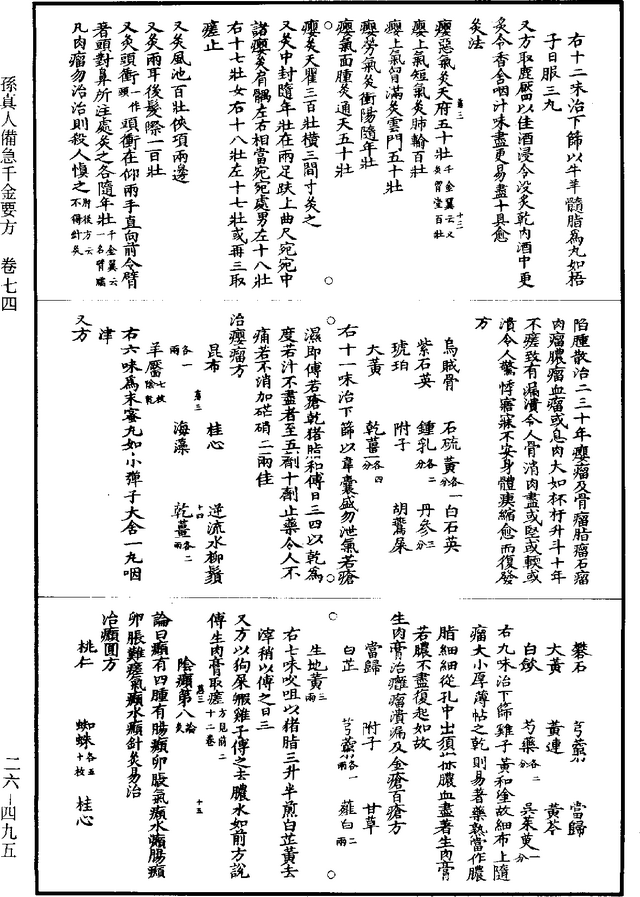 右十二味治下篩以牛羊髓脂爲丸如梧
子日服三丸
又方取塵靨四以佳酒浸令没炙乾内酒中更
炙令香含咽汁味盡更易盡十具愈
灸法
癭惡氣灸天府五十壯千金翼云又灸胷堂百壯
癭上氣短氣灸肺輸百壯
癭上氣胷滿灸雲門五十壯
癭勞氣灸衝陽隨年壯
癭氣面腫灸通天五十壯
癭灸天瞿三百壯横三間寸灸之
又灸中封隨年壯在兩足趺上曲尺宛宛中
諸癭灸肩髃左右相當宛宛處男左十八壯
右十七壯女右十八壯左十七壯或再三取
瘥止
又灸風池百壯俠項兩邊
又灸兩耳後髮際一百壯
又灸頭衝頭一作頭衝在仰兩手直向前令臂
著頭對鼻所注處灸之各隨年壯千金翼云一名臂臑
凡肉瘤勿治治則殺人慎之肘後方云不得針灸
陷腫散治二三十年癭瘤及骨瘤脂瘤石瘤
肉瘤膿瘤血瘤或息肉大如杯杅升斗十年
不瘥致有漏潰令人骨消肉盡或堅或軟或
潰令人驚悸寤寐不安身體瘈縮愈而復發
方
烏賊骨 石硫黄各一分 白石英
紫石英 鍾乳各二分 丹參三分
琥珀 附子 胡鷰屎
大黄 乾薑各四分
右十一味治下篩以韋囊盛勿泄氣若瘡
濕即傅若瘡乾猪脂和傅日三四以乾爲
度若汁不盡者至五劑十劑止藥令人不
痛若不消加芒硝二兩佳
治癭瘤方
昆布 桂心 逆流水柳鬚各一兩
羊靨七枚陰乾 海藻 乾薑各二兩
右六味爲末蜜丸如小彈子大含一丸咽
津
又方
礬石 芎藭 當歸
大黄 黄連 黄芩
白斂 芍藥各二分 吳茱萸一分
右九味治下篩雞子黄和塗故細布上隨
瘤大小厚薄帖之乾則易著藥熟當作膿
脂細細從孔中出須㧞膿血盡著生肉膏
若膿不盡復起如故
生肉膏治癰瘤潰漏及金瘡百瘡方
當歸 附子 甘草
白芷 芎藭各一兩 薤白二兩
生地黄三兩
右七味㕮咀以猪脂三升半煎白芷黄去
滓稍以傅之日三
又方以狗屎㲉雞子傅之去膿水如前方說
傅生肉膏取瘥方見前二十二卷
陰㿗第八論灸
論曰㿗有四腫有腸㿗卵脹氣㿗水㿗腸㿗
卵脹難瘥氣㿗水㿗針灸易治
治㿗圓方
桃仁 蜘蛛各五十枚 桂心
孫真人備急千金要方 卷七四
二六—四九五